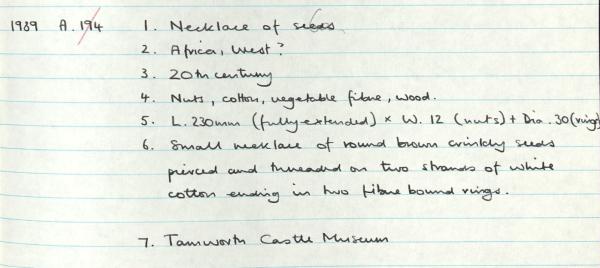 1989 A.194 1. Necklace of seeds
2. Africa, West?
3. 20th century
4. Nuts, cotton, vegetable fibre, wood.
5. L. 230mm (fully extended) × W. 12 (nuts) + Dia. 30 (rings)
6. Small necklace of round brown crinkly seeds
pierced and threaded on two strands of white
cotton ending in two fibre bound rings.
7. Tamworth Castle Museum